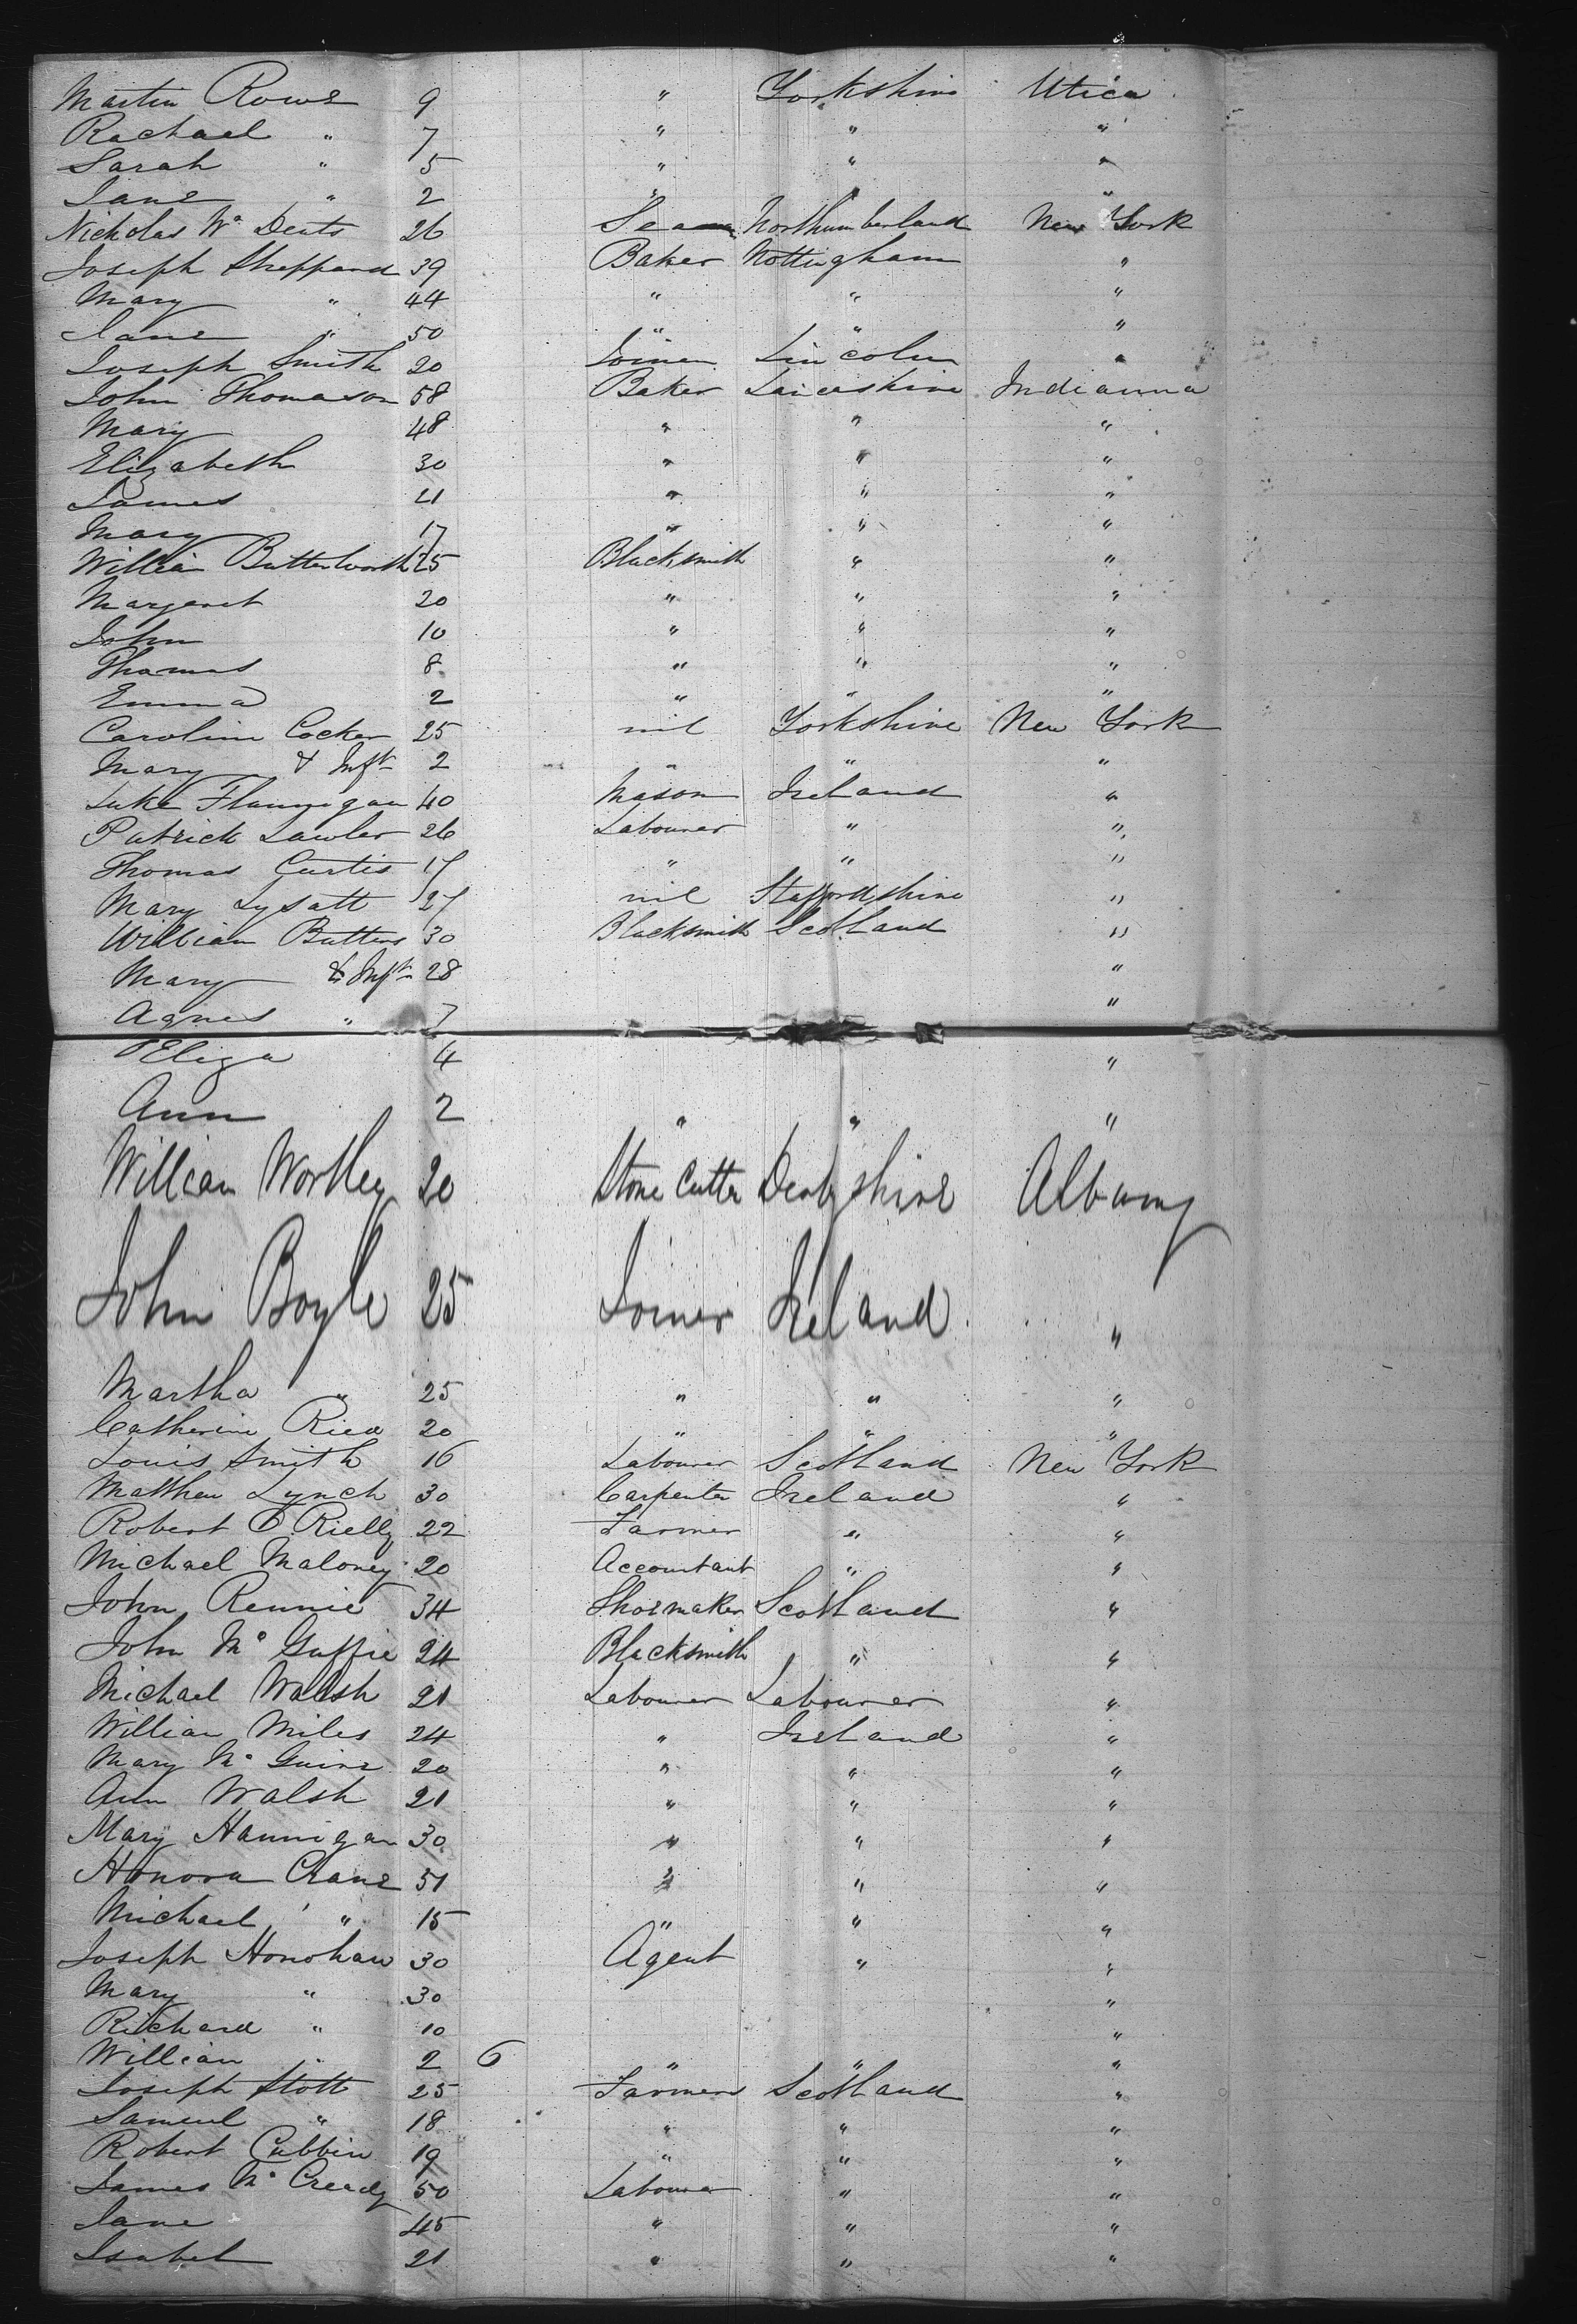 Martin Rowe 9 " Yorkshire Utica
Rachael " 7 " " "
Sarah " 5 " " "
Jane " 2 " " "
Nicholas Wm 26 Northumberland New York
Joseph Sheppard 39 Baker Nottingham "
Mary " 44 " " "
Jane " 50 " " "
Joseph Smith 20 Joiner Lincoln "
John Thomason 58 Baker Lancashire Indianna
Mary 48 " " "
Elizabeth 30 " " "
James 21 " " "
Mary 17 " " "
William Butterworth 25 Blacksmith " "
Margaret 20 " " "
John 10 " " "
Thomas 8 " " "
Emma 2 " " "
Caroline Cocker 25 nil Yorkshire New York
Mary & Inft 2 " " "
Luke Flannigan 40 Mason Ireland "
Patrick Lawler 26 Labourer " "
Thomas Curtis 17 " " "
Mary Lysatt 27 nil Staffordshire "
William Butters 30 Blacksmith Scotland "
Mary & Inft 28 "
Agnes " 7 "
Eliza 4 "
Ann 2 " " "
William Wortley 20 Stone Cutter Derbyshire Albany
John Boyle 25 Joiner Ireland "
Martha " 25 " " "
Catherine Ried 20 " " "
Louis Smith 16 Labourer Scotland New York
Matthew Lynch 30 Carpenter Ireland "
Robert O Rielly 22 Farmer " "
Michael Maloney 20 Accountant " "
John Rennie 34 Shoemaker Scotland "
John Mc Guffie 24 Blacksmith " "
Michael Walsh 21 Labourer Labourer "
William Miles 24 " Ireland "
Mary Mc Guire 20 " " "
Ann Walsh 21 " " "
Mary Hannigan 30 " " "
Honora Crane 51 " " "
Michael " 15 " " "
Joseph Honohan 30 Agent " "
Mary " 30 "
Richard " 10 "
William " 2 6 " " "
Joseph Stott 25 Farmers Scotland "
Samuel " 18 " " "
Robert Cubbin 19 " " "
James Mc Cready 50 Labourer " "
Jane 45 " " "
Isabel 21 " " "